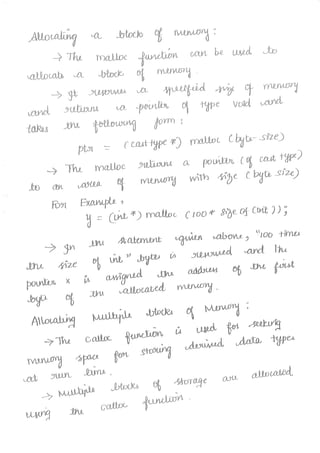 Allocating a block of memory :
→ The malloc function can be used to
allocate a block of memory.
→ It reserves a specified size of memory
and returns a pointer of type void and
takes the following form :
ptr = (cast type *) malloc (byte-size)
→ The malloc returns a pointer (of cast type)
to an area of memory with size (byte size)
For Example,
y = (int *) malloc (100 * size of (int));
→ In the statement given above, "100 times
the size of int" bytes is reserved and the
pointer x is assigned the address of the first
byte of the allocated memory.
Allocating Multiple blocks of Memory :
→ The calloc function is used for seeking
memory space for storing derived data types
at run time.
→ Multiple blocks of storage are allocated
using the calloc function.